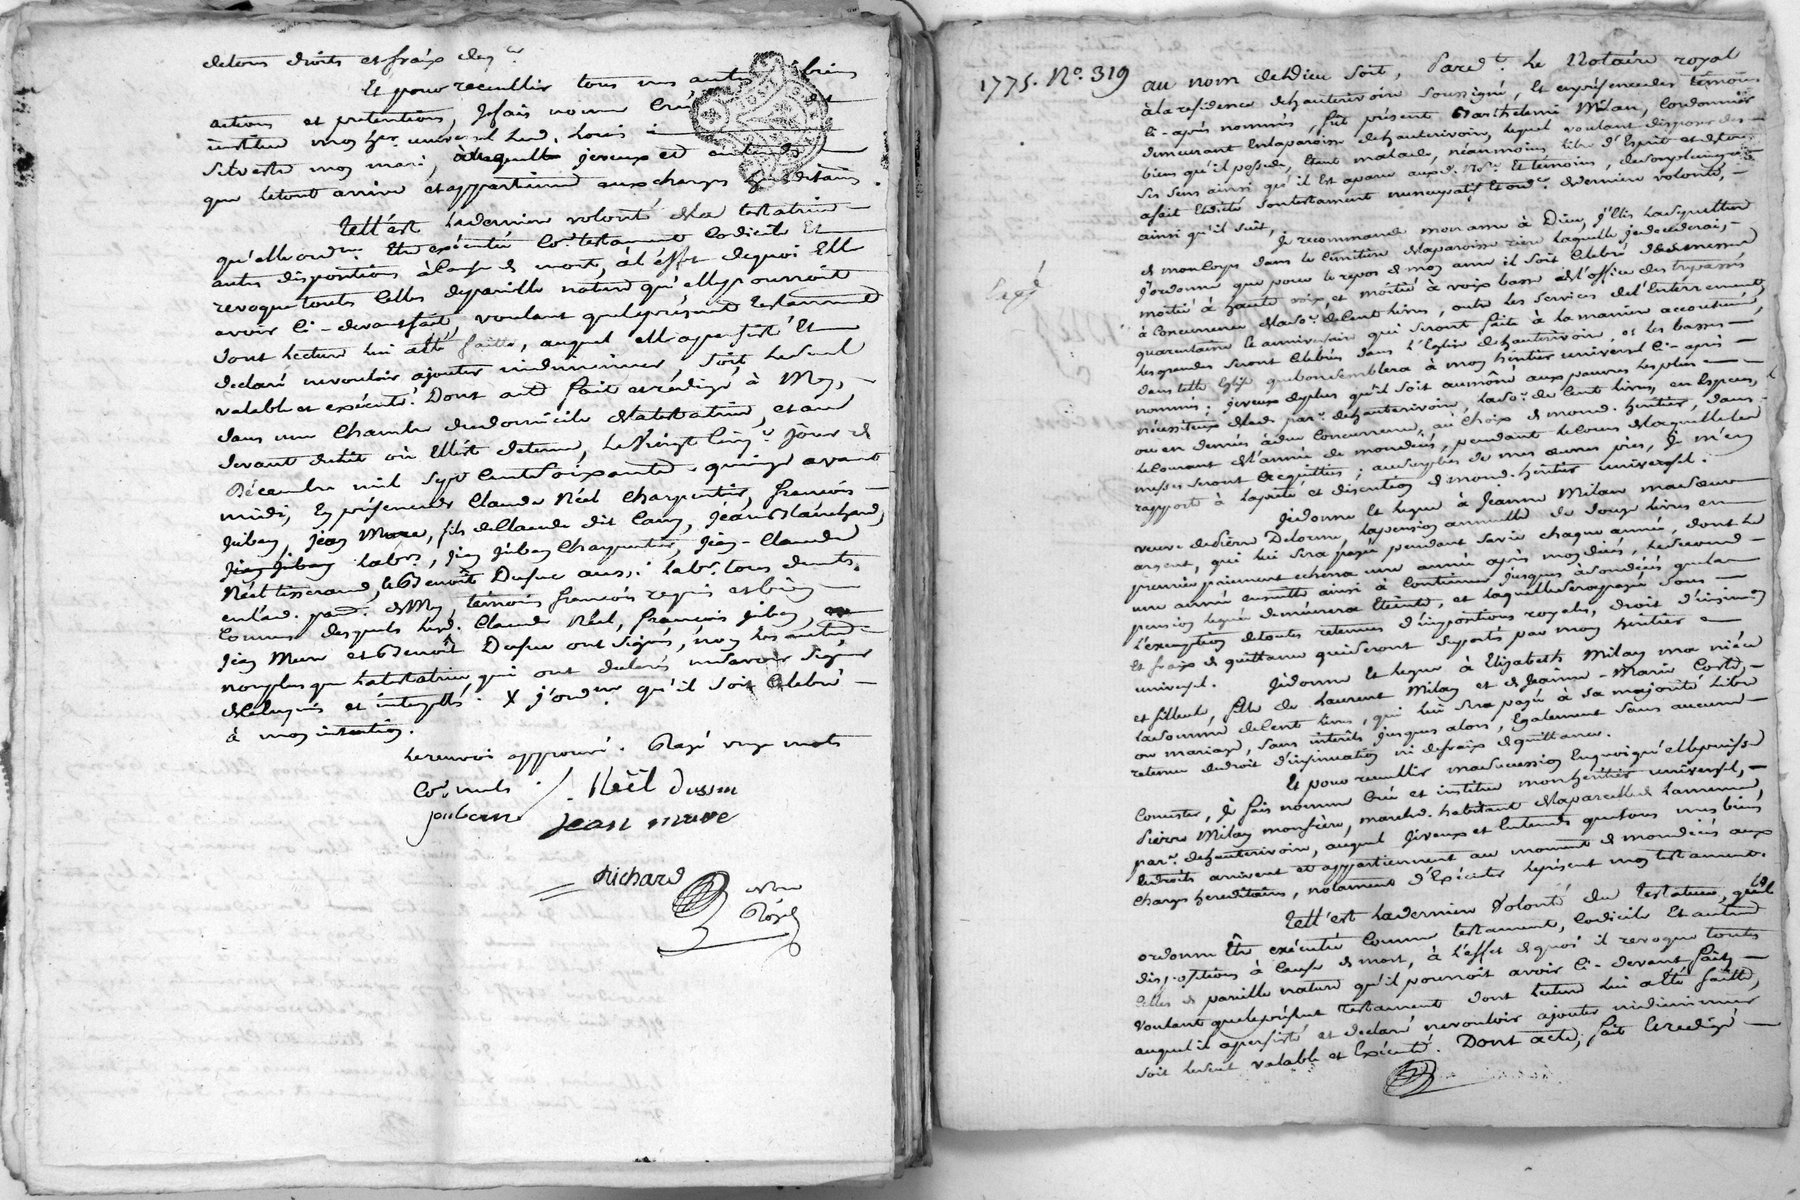 de tous droits et fraix des.
Et pour recuillir tous mes autres biens
actions et pretentions, Je fais nomme Crée et
institue mon her. universel led. Louis
Silvestre mon mari, à laquelle je veux et entends
que le tout arrive et appartienne aux charges hereditaires.
Tell'est la derniere volonté de la testatrice
qu'elle ord.ne Etre exécutée Co.e testament Codicile Et
autres dispositions à Cause de mort, à l'effet de quoi Elle
revoque toutes Celles de pareille nature qu'elle pourroit
avoir Ci-devant fait voulant que le présent testament
dont lecture lui a été faitte, auquel elle a persisté Et
declaré ne vouloir ajouter ni diminuer soit le seul
valable et exécuté. Dont acte fait et rédigé à Mey,
dans une Chambre du domicile de la testatrice, et au
devant du lit où Elle est detenue, le Vingt Cinq.e Jour de
Décembre mil Sept Cent Soixante-quinze avant
midi, En présence de Claude Réel Charpentier, françois
Juban, Jean Mure, fils de Claude dit Cany, Jean Blanchard,
Jean Juban lab.r, Jean Juban Charpentier, Jean-Claude
Réel tisserand, et Benoît Dufuc aussi lab.r tous demts.
en lad. par. de Mey, témoins françois requis et bien
Connus desquels lesd. Claude Réel, françois Juban,
Jean Mure et Benoît Dufuc ont signés, non les autres
non plus que la testatrice qui ont declarés ne savoir signer
de le enquis et interpellés. X J'ordonne qu'il soit Celebré
à mon intention.
le renvoi approuvé. Rayé mots
Co.e nuls
Joubans Réel Dufuc
jean mure
Richard
Nore
Royal
1775. N°. 319
au nom de Dieu soit, Pard.t Le Notaire royal
à la résidence de hauterivoire soussigné, Et en présence des temoins
Ci-après nommés, fut présent Barthelemi Milan, Cordonnier
demeurant En la paroisse de hauterivoire, lequel voulant disposer des
biens qu'il possede, Etant malade, néanmoins libre d'Esprit et de tous
ses sens ainsi qu'il Est aparu aux d. No.e Et témoins, de son plein gré
a fait Et dicté son testament nuncupatif Et ord.e de derniere volonté,
ainsi qu'il suit,
Je recommande mon ame à Dieu, J'Elis la sepulture
de mon Corps dans le Cimétiere de la paroisse riere laquelle je decederai,
J'ordonne que pour le repos de mon ame il soit Celebré des messes
moitié à haute voix, et moitié à voix basse de l'office des trepassés
à Concurrence de la so.e de Cent livres, outre les services de l'Enterrement,
quarantaine Et anniversaire qui seront faits à la maniere accoutumée,
les grandes seront Celebrées dans l'Eglise de hauterivoire, et les basses
dans telle Eglise que bon semblera à mon héritier universel Ci-après
nommé; je veux de plus qu'il soit aumôné aux pauvres les plus
nécessiteux de lad. par. de hauterivoire, la so.e de Cent livres, en Especes,
ou en denrées à due Concurrence, au Choix de mond. héritier, dans
le Courant de l'année de mon decès, pendant le cours de laquelle les d.
messes seront acquittées; au surplus de mes œuvres pies, Je m'en
rapporte à la piété et discrétion de mond. héritier universel.
Je donne Et legue à Jeanne Milan ma sœur
veuve de Pierre Delorme, la pension annuelle de douze livres en
argent, qui lui sera payée pendant sa vie chaque année, dont le
premier paiement echerra une année après mon decès, le second
une année ensuitte ainsi à Continuer jusques à son decès que la
pension leguée demeurera Eteinte, et laquelle sera payée sous
l'exemption de toutes retenues d'impositions royales, droit d'insinuation
Et fraix de quittance qui seront suportés par mon héritier
universel.
Je donne Et legue à Elizabeth Milan ma niéce
et filleule, fille de Laurent Milan et de Jeanne-Marie Coste,
la somme de Cent livres, qui lui sera payée à sa majorité libre
ou mariage, sans intérêts jusques alors, Egalement sans aucune
retenue du droit d'insinuation ni de fraix de quittance.
Et pour recuillir ma succession En quoi qu'elle puisse
Consister, Je fais nomme Crée et institue mon heritier universel,
Pierre Milan mon frére, march. habitant de la parcelle de Lameure,
par. de hauterivoire, auquel Je veux et Entends que tous mes biens
Et droits arrivent et appartiennent au moment de mon decès aux
charges hereditaires, notament d'Exécuter le présent mon testament.
Tell'est la derniere Volonté du Testateur, qu'il
ordonne Etre exécutée Comme testament, Codicile Et autres
dispositions à Cause de mort, à l'effet de quoi il revoque toutes
Celles de pareille nature qu'il pourroit avoir Ci-devant faites,
voulant que le présent testament dont lecture lui a été faitte,
auquel il a persisté et declaré ne vouloir ajouter ni diminuer
soit le seul valable et Exécuté. Dont acte, fait Et redigé